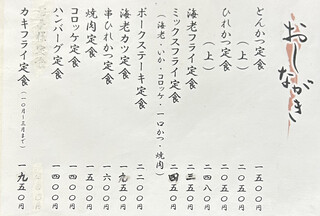 おしながき
とんかつ定食 一五〇〇円
〃（上） 二〇五〇円
ひれかつ定食 二〇五〇円
〃（上） 二四八〇円
海老フライ定食 二五〇円
ミックスフライ定食 二四五〇円
（海老・いか・コロッケ・一口かつ・焼肉）
ポークステーキ定食 二二〇〇円
海老カツ定食 一九五〇円
串ひれかつ定食 一六〇〇円
焼肉定食 一五〇〇円
コロッケ定食 一四〇〇円
ハンバーグ定食 一四〇〇円
カキフライ定食（一〇月〜三月まで） 一九五〇円